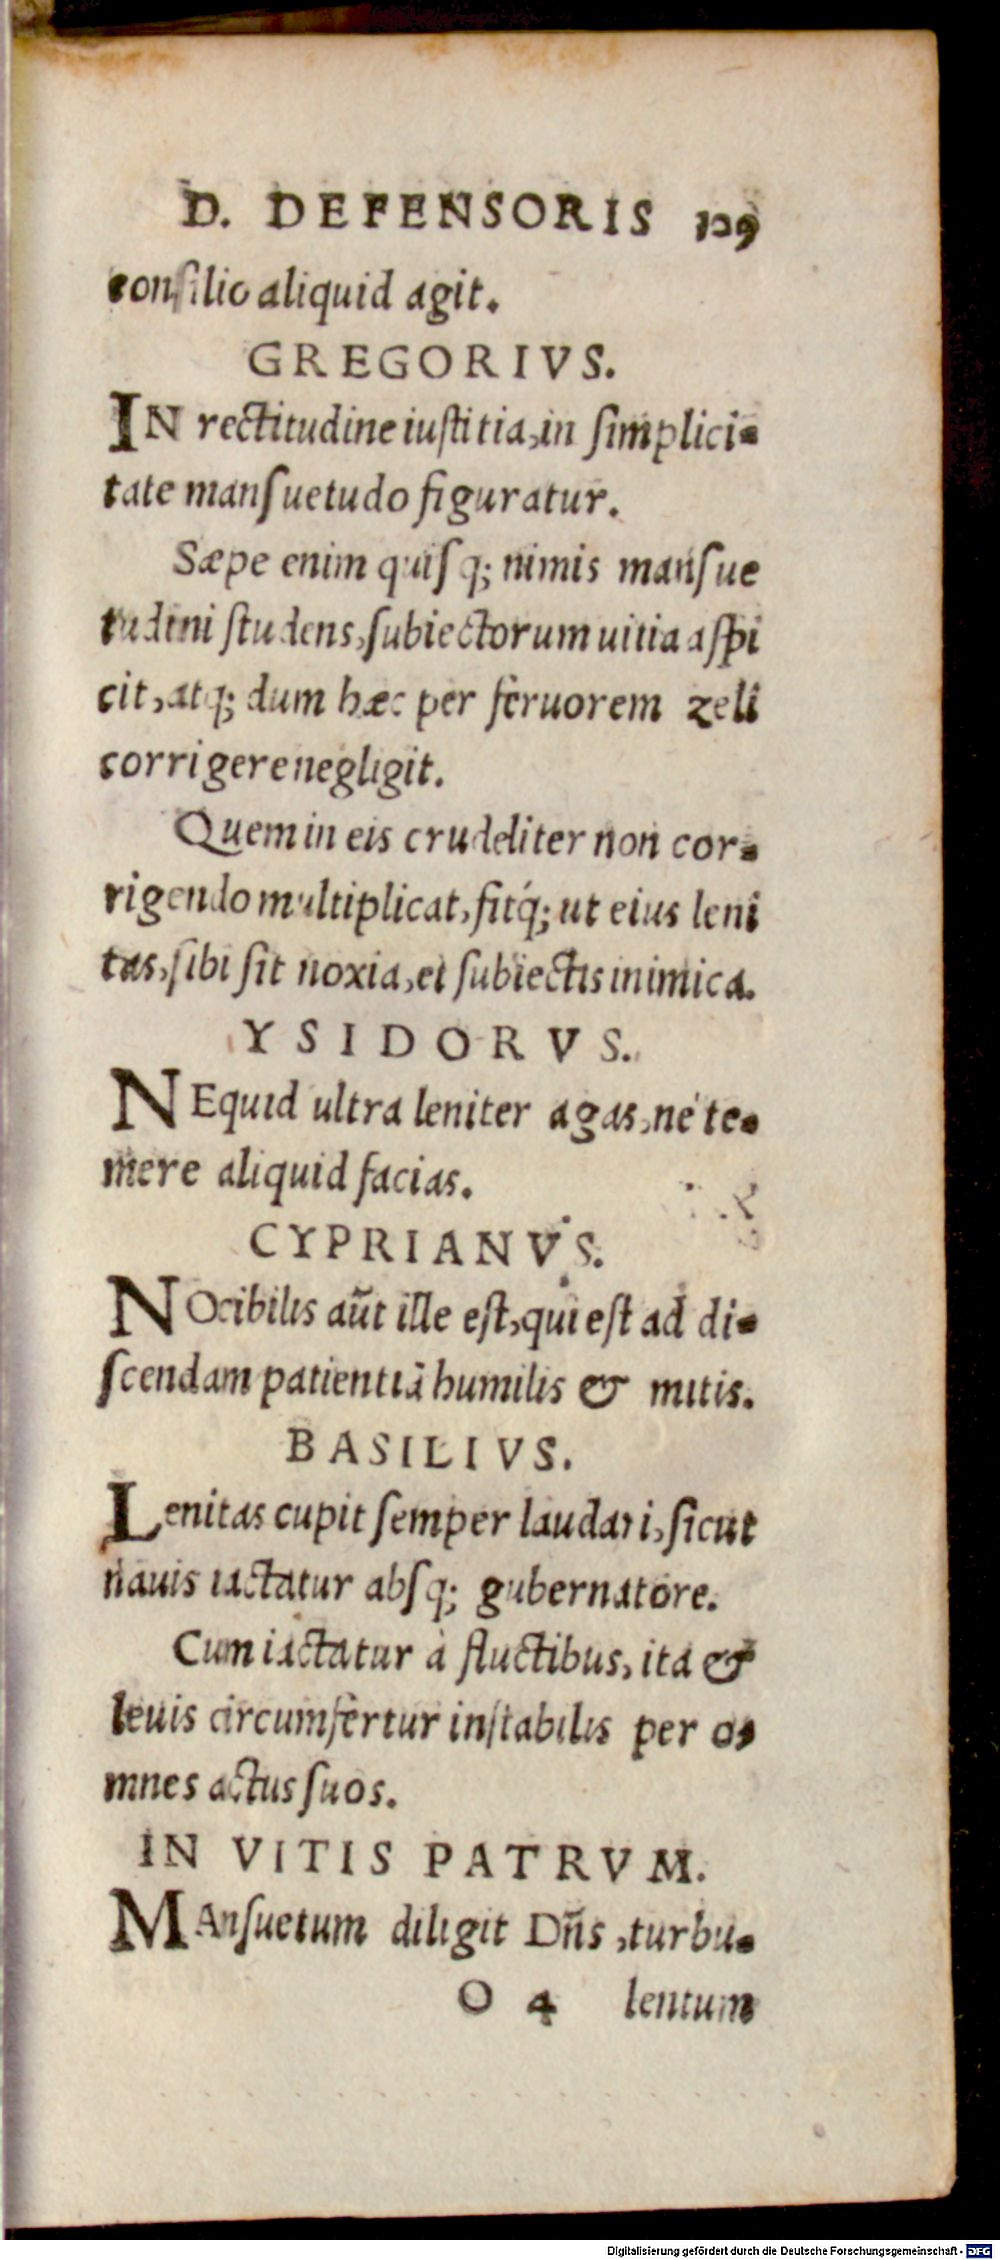 D. DEFENSORIS 109
consilio aliquid agit.
GREGORIVS.
IN rectitudine iustitia, in simplici-
tate mansuetudo figuratur.
Sæpe enim quisq; nimis mansue
tudini studens, subiectorum uitia aspi
cit, atq; dum hæc per feruorem zeli
corrigere negligit.
Quem in eis crudeliter non cor-
rigendo multiplicat, fitq́; ut eius leni
tas, sibi sit noxia, et subiectis inimica.
YSIDORVS.
NEquid ultra leniter agas, nè te-
mere aliquid facias.
CYPRIANVS.
NOcibilis aūt ille est, qui est ad di-
scendam patientiā humilis & mitis.
BASILIVS.
Lenitas cupit semper laudari, sicut
nauis iactatur absq; gubernatore.
Cum iactatur à fluctibus, ita &
leuis circumfertur instabilis per o-
mnes actus suos.
IN VITIS PATRVM.
MAnsuetum diligit Dñs, turbu-
O 4 lentum
Digitalisierung gefördert durch die Deutsche Forschungsgemeinschaft - DFG